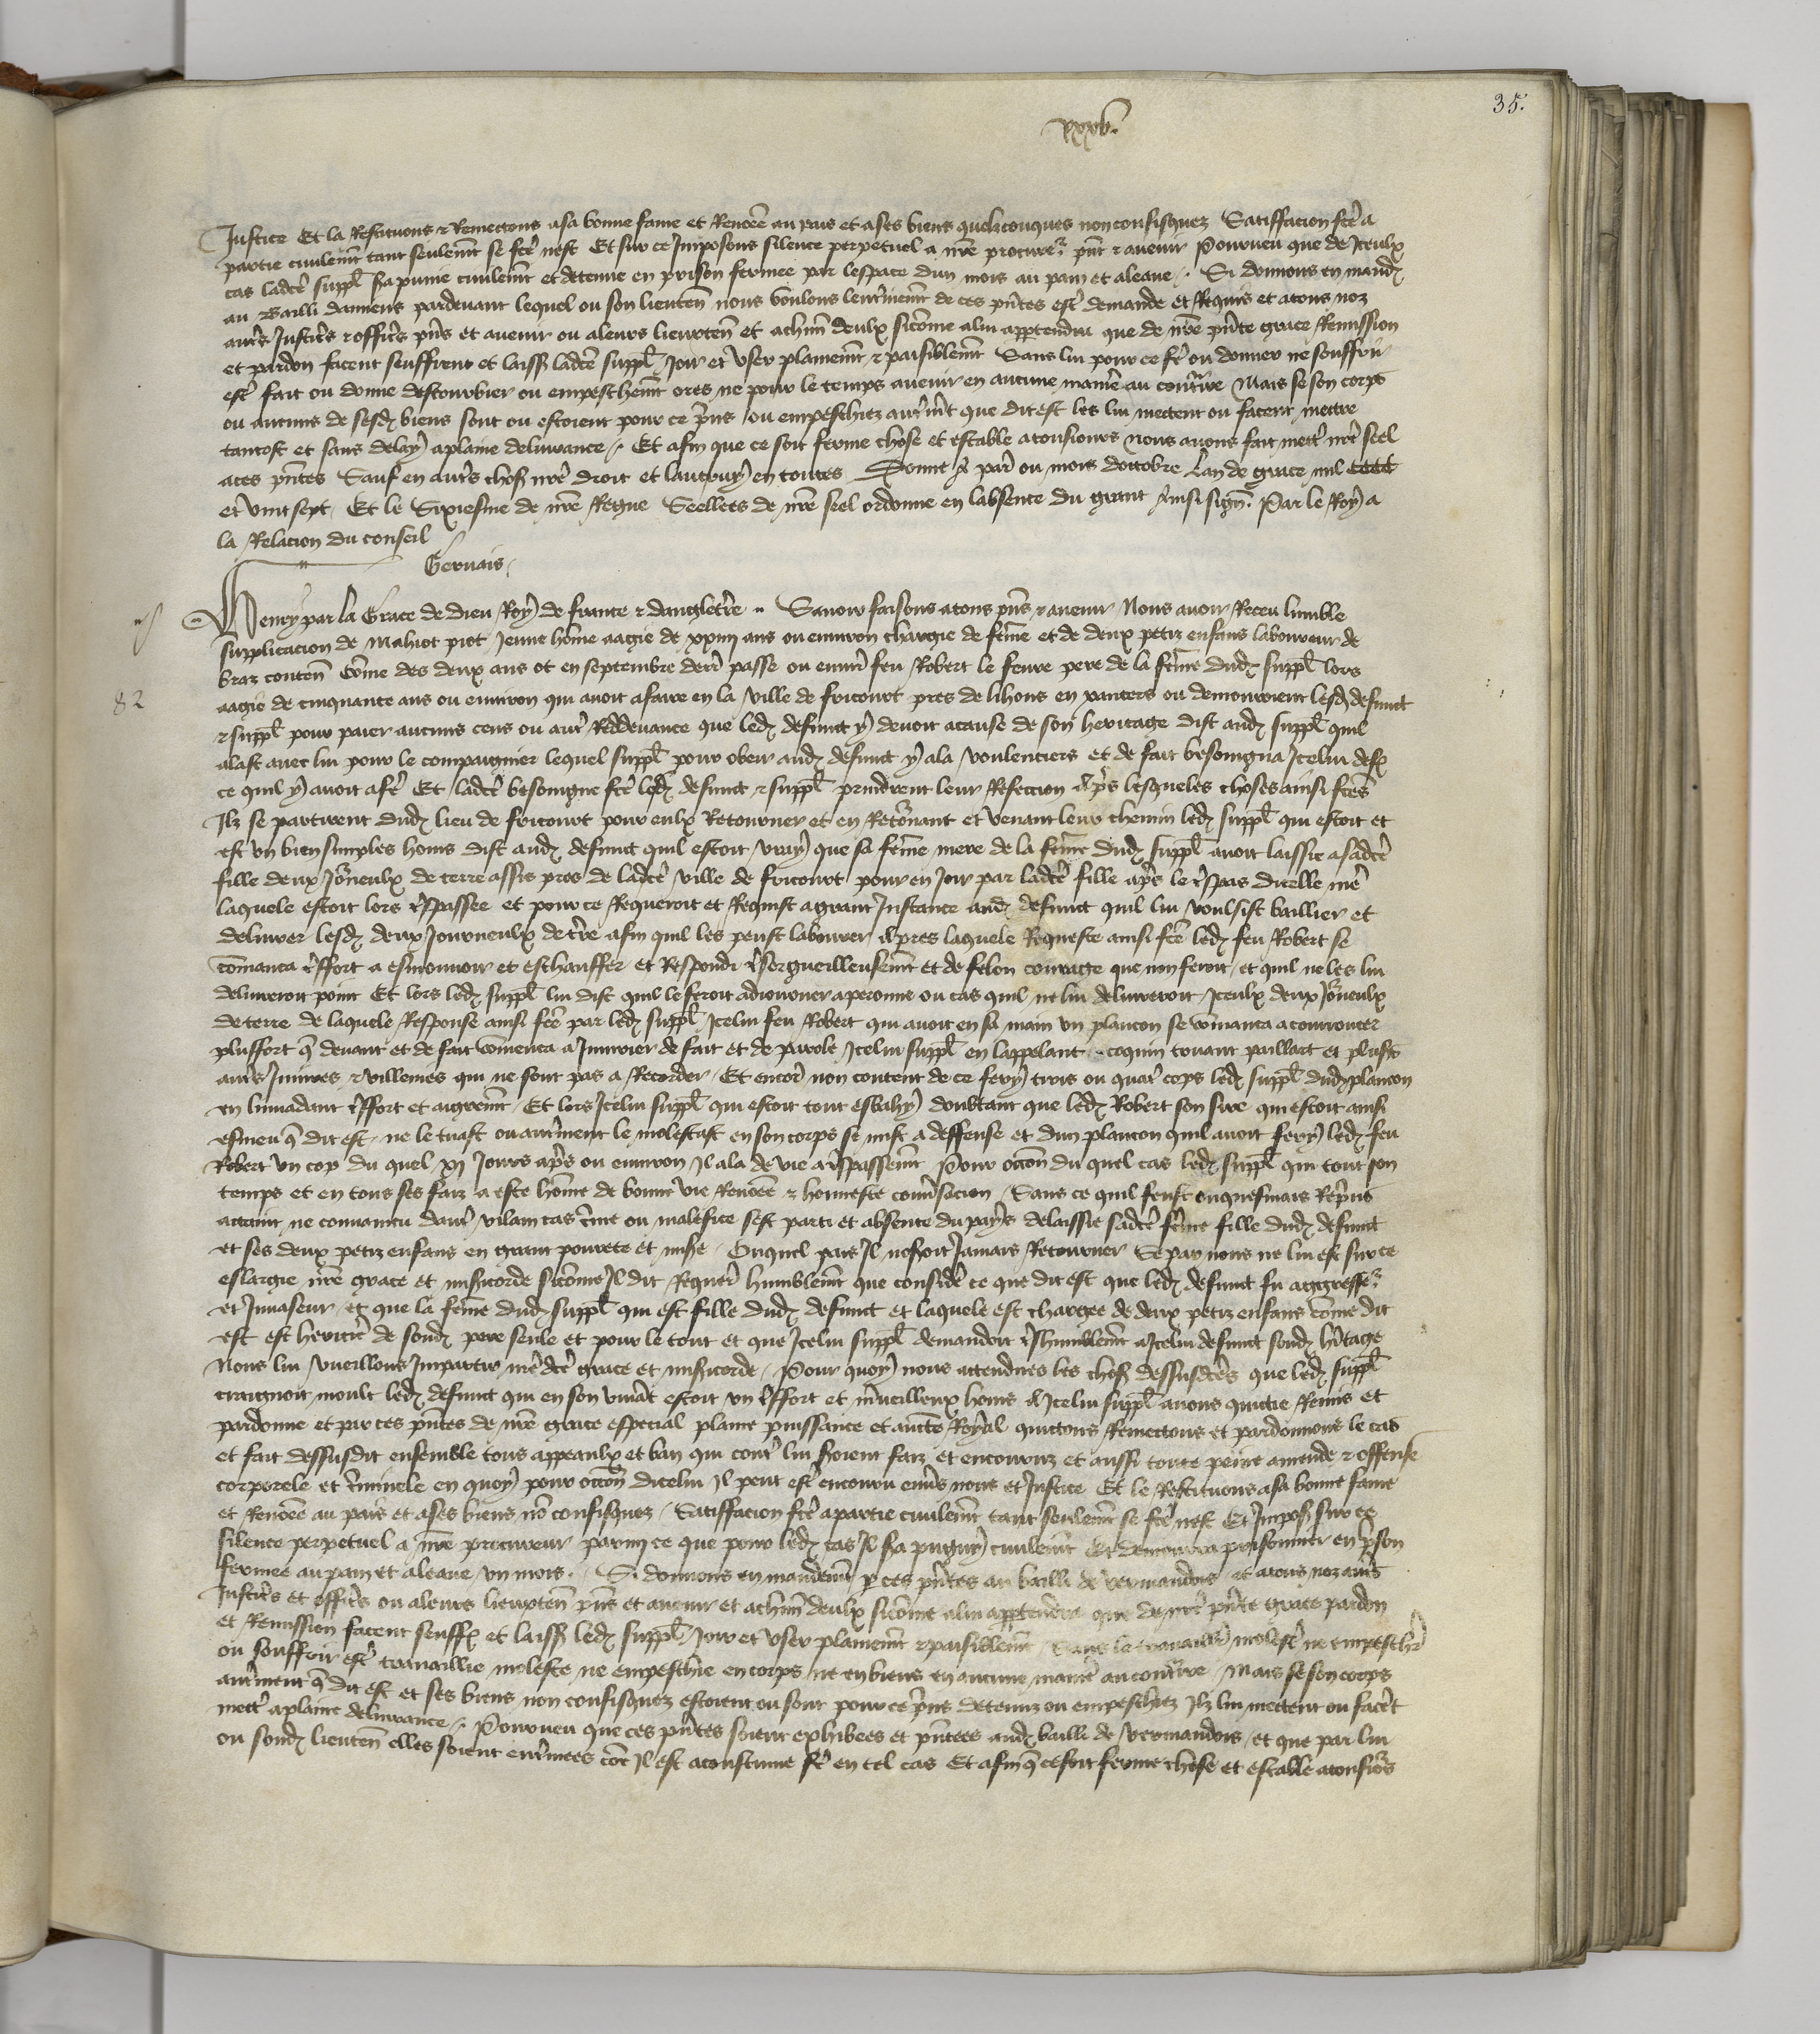 35.
xxxv.
Justice Et la Restituons & Remectons a sa bonne fame et Renoee au pais et a ses biens quelzconques non confisquez Satiffacion fcte a
partie civilemt tant seulemt se fcte nest Et sur ce Imposons silence perpetuel a nre procureur pnt & avenir Pourveu que de Iceulx
cas ladcte suppl sera punie civilemt et detenue en prison fermee par lespace dun mois au pain et a leaue. Si donnons en mand
au Bailli damiens pardevant lequel ou son lieuten nous voulons lenterinemt de ces pntes estre demande et Requis et a tous noz
autres Justiciers & officiers pns et avenir ou a leurs lieuxten et a chun deulx si come a lui appartendra que de nre pnte grace Remission
et pardon facent seuffrent et laissent ladcte suppl Joir et user plainemt & paisiblemt Sans lui pour ce fe ou donner ne souffrir
estre fait ou donne destourbier ou empeschemt ores ne pour le temps avenir en aucune maniere au contraire Mais se son corps
ou aucuns de sesd biens sont ou estoient pour ce prins ou empeschiez autremt que dit est les lui mettent ou facent mettre
tantost et sans delay a plaine delivrance. Et afin que ce soit ferme chose et estable a tousiours Nous avons fait mettre nre seel
a ces pntes Sauf en autres choses nre droit et lautruy en toutes Donne a par ou mois doctobre Lan de grace mil CCCC
et vint sept Et le Sixiesme de nre Regne Seellees de nre seel ordonne en labsence du grant Ainsi sign. Par le Roy a
la Relacion du conseil
Gervais
Henry par la Grace de Dieu Roy de france & dangletre Savoir faisons a tous pns & avenir Nous avoir Receu lumble
82
supplicacion de Mahiot piet Jeune home aagie de xxiiii ans ou environ chargie de feme et de deux petiz enfans laboureur de
braz conten Come des deux ans ot en septembre derr passe ou envir feu Robert le fevre pere de la feme dud suppl lors
aagie de cinquante ans ou environ qui avoit a faire en la ville de fricourt pres de lihons en santers ou demouroient lesd defunct
& suppl pour paier aucuns cens ou autre Reddevance que led defunct y devoit a cause de son heritage dist aud suppl quil
alast avec lui pour le compaignier lequel suppl pour obeir aud defunct y ala voulentiers et de fait besoingna Icelui def
ce quil y avoit a fe Et ladcte besoingne fcte led defunct & suppl prindrent leur Refeccion Apres lesqueles choses ainsi fctes
Ilz se partirent dud lieu de fricourt pour eulx Retourner et en Retornant et venant leur chemin led suppl qui estoit et
est un bien simples homs dist aud defunct quil estoit vray que sa feme mere de la feme dud suppl avoit laissie a sadcte
fille deux Jorneulx de terre assis pres de ladcte ville de fricourt pour en Joir par ladcte fille apres le trespas dicelle mere
laquele estoit lors trespassee et pour ce Requeroit et Requist a grant Instance aud defunct quil lui voulsist baillier et
delivrer lesd deux Journeulx de terre afin quil les peust labourer Apres laquele Requeste ainsi fcte led feu Robert se
comanca tresfort a esmouvoir et eschauffer et Respondi tresorgueilleusemt et de felon courage que non feroit et quil ne les lui
delivreroit point Et lors led suppl lui dist quil le feroit adiourner a peronne ou cas quil ne lui delivreroit Iceulx deux Jorneulx
de terre de laquele Response ainsi fcte par led suppl Icelui feu Robert qui avoit en sa main un plancon se comanca a courroucer
plusfort que devant et de fait comenca a Iniurier de fait et de parole Icelui suppl en lappelant coquin truant paillart et plus
autres Iniures & villenies qui ne sont pas a Recorder Et encor non content de ce fery trois ou quatre cops led suppl dud plancon
en linvadant tresfort et aigremt Et lors Icelui suppl qui estoit tout esbahy doubtant que led Robert son sire qui estoit ainsi
esmeu que dit est ne le tuast ou autrement le molestast en son corps se mist a deffense et dun plancon quil avoit fery led feu
Robert un cop du quel xi Jours apres ou environ Il ala de vie a trespassemt Pour occon du quel cas led suppl qui tout son
temps et en tous ses faiz a este home de bonne vie Renoee & honneste conversacion Sans ce quil feust onquesmais Repris
attaint ne convaincu daucun vilain cas crime ou malefice sest parti et absente du pays delaissie sadcte feme fille dud defunct
et ses deux petiz enfans en grant povrete et misere Ouquel pais Il noseroit Jamais Retourner Se par nous ne lui est sur ce
eslargie nre grace et misericorde si come Il dit Requer humblemt que consider ce que dit est que led defunct fu aggresseur
et Invaseur et que la feme dud suppl qui est fille dud defunct et laquele est chargee de deux petiz enfans come dit
est est heritiere de sond pere seule et pour le tout et que Icelui suppl demandoit treshumblemt a Icelui defunct sond heritage
Nous lui vueillons Impartir nre dcte grace et misericorde Pour quoy nous attendues les choses dessusdctes que led suppl
craignoit moult led defunct qui en son vivant estoit un tresfort et merveilleux home A Icelui suppl avons quictie Remis et
pardonne et par ces pntes de nre grace especial plaine puissance et aucte Royal quictons Remectons et pardonnons le cas
et fait dessusdit ensemble tous appeaulx et ban qui contre lui seroient faiz et encouruz et aussi toute peine amende & offense
corporele et criminele en quoy pour occon dicelui Il peut estre encouru envers nous et Justice Et le Restituons a sa bonne fame
et Renoee au pais et a ses biens non confisquez Satiffacion fcte a partie civilemt tant seulemt se fcte nest Et Imposons sur ce
silence perpetuel a nre procureur parmi ce que pour led cas Il sera pugny civilemt Et demourra prisonnier en prison
fermee au pain et a leaue un mois. Si donnons en mandemt par ces pntes au bailli de Vermandois et a tous noz autres
Justiciers et officiers ou a leurs lieuxten pns et avenir et a chun deulx si come a lui appartendra que de nre pnte grace pardon
et Remission facent seuffrent et laissent led suppl Joir et user plainemt & paisiblemt Sans le travaillier molester ne empeschier
ou souffrir estre travaillie moleste ne empeschie en corps ne en biens en aucune maniere au contraire Mais se son corps
autrement que dit est et ses biens non confisquez estoient ou sont pour ce prins detenuz ou empeschiez Ilz lui mettent ou facent
mettre a plaine delivrance. Pourveu que ces pntes soient exhibees et pntees aud bailli de Vermandois et que par lui
ou sond lieuten elles soient enterinees come Il est acoustume fe en tel cas Et afin que ce soit ferme chose et estable a tousiours